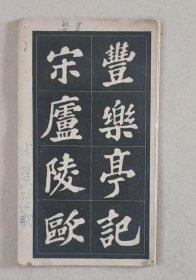 豐樂亭記
宋廬陵歐